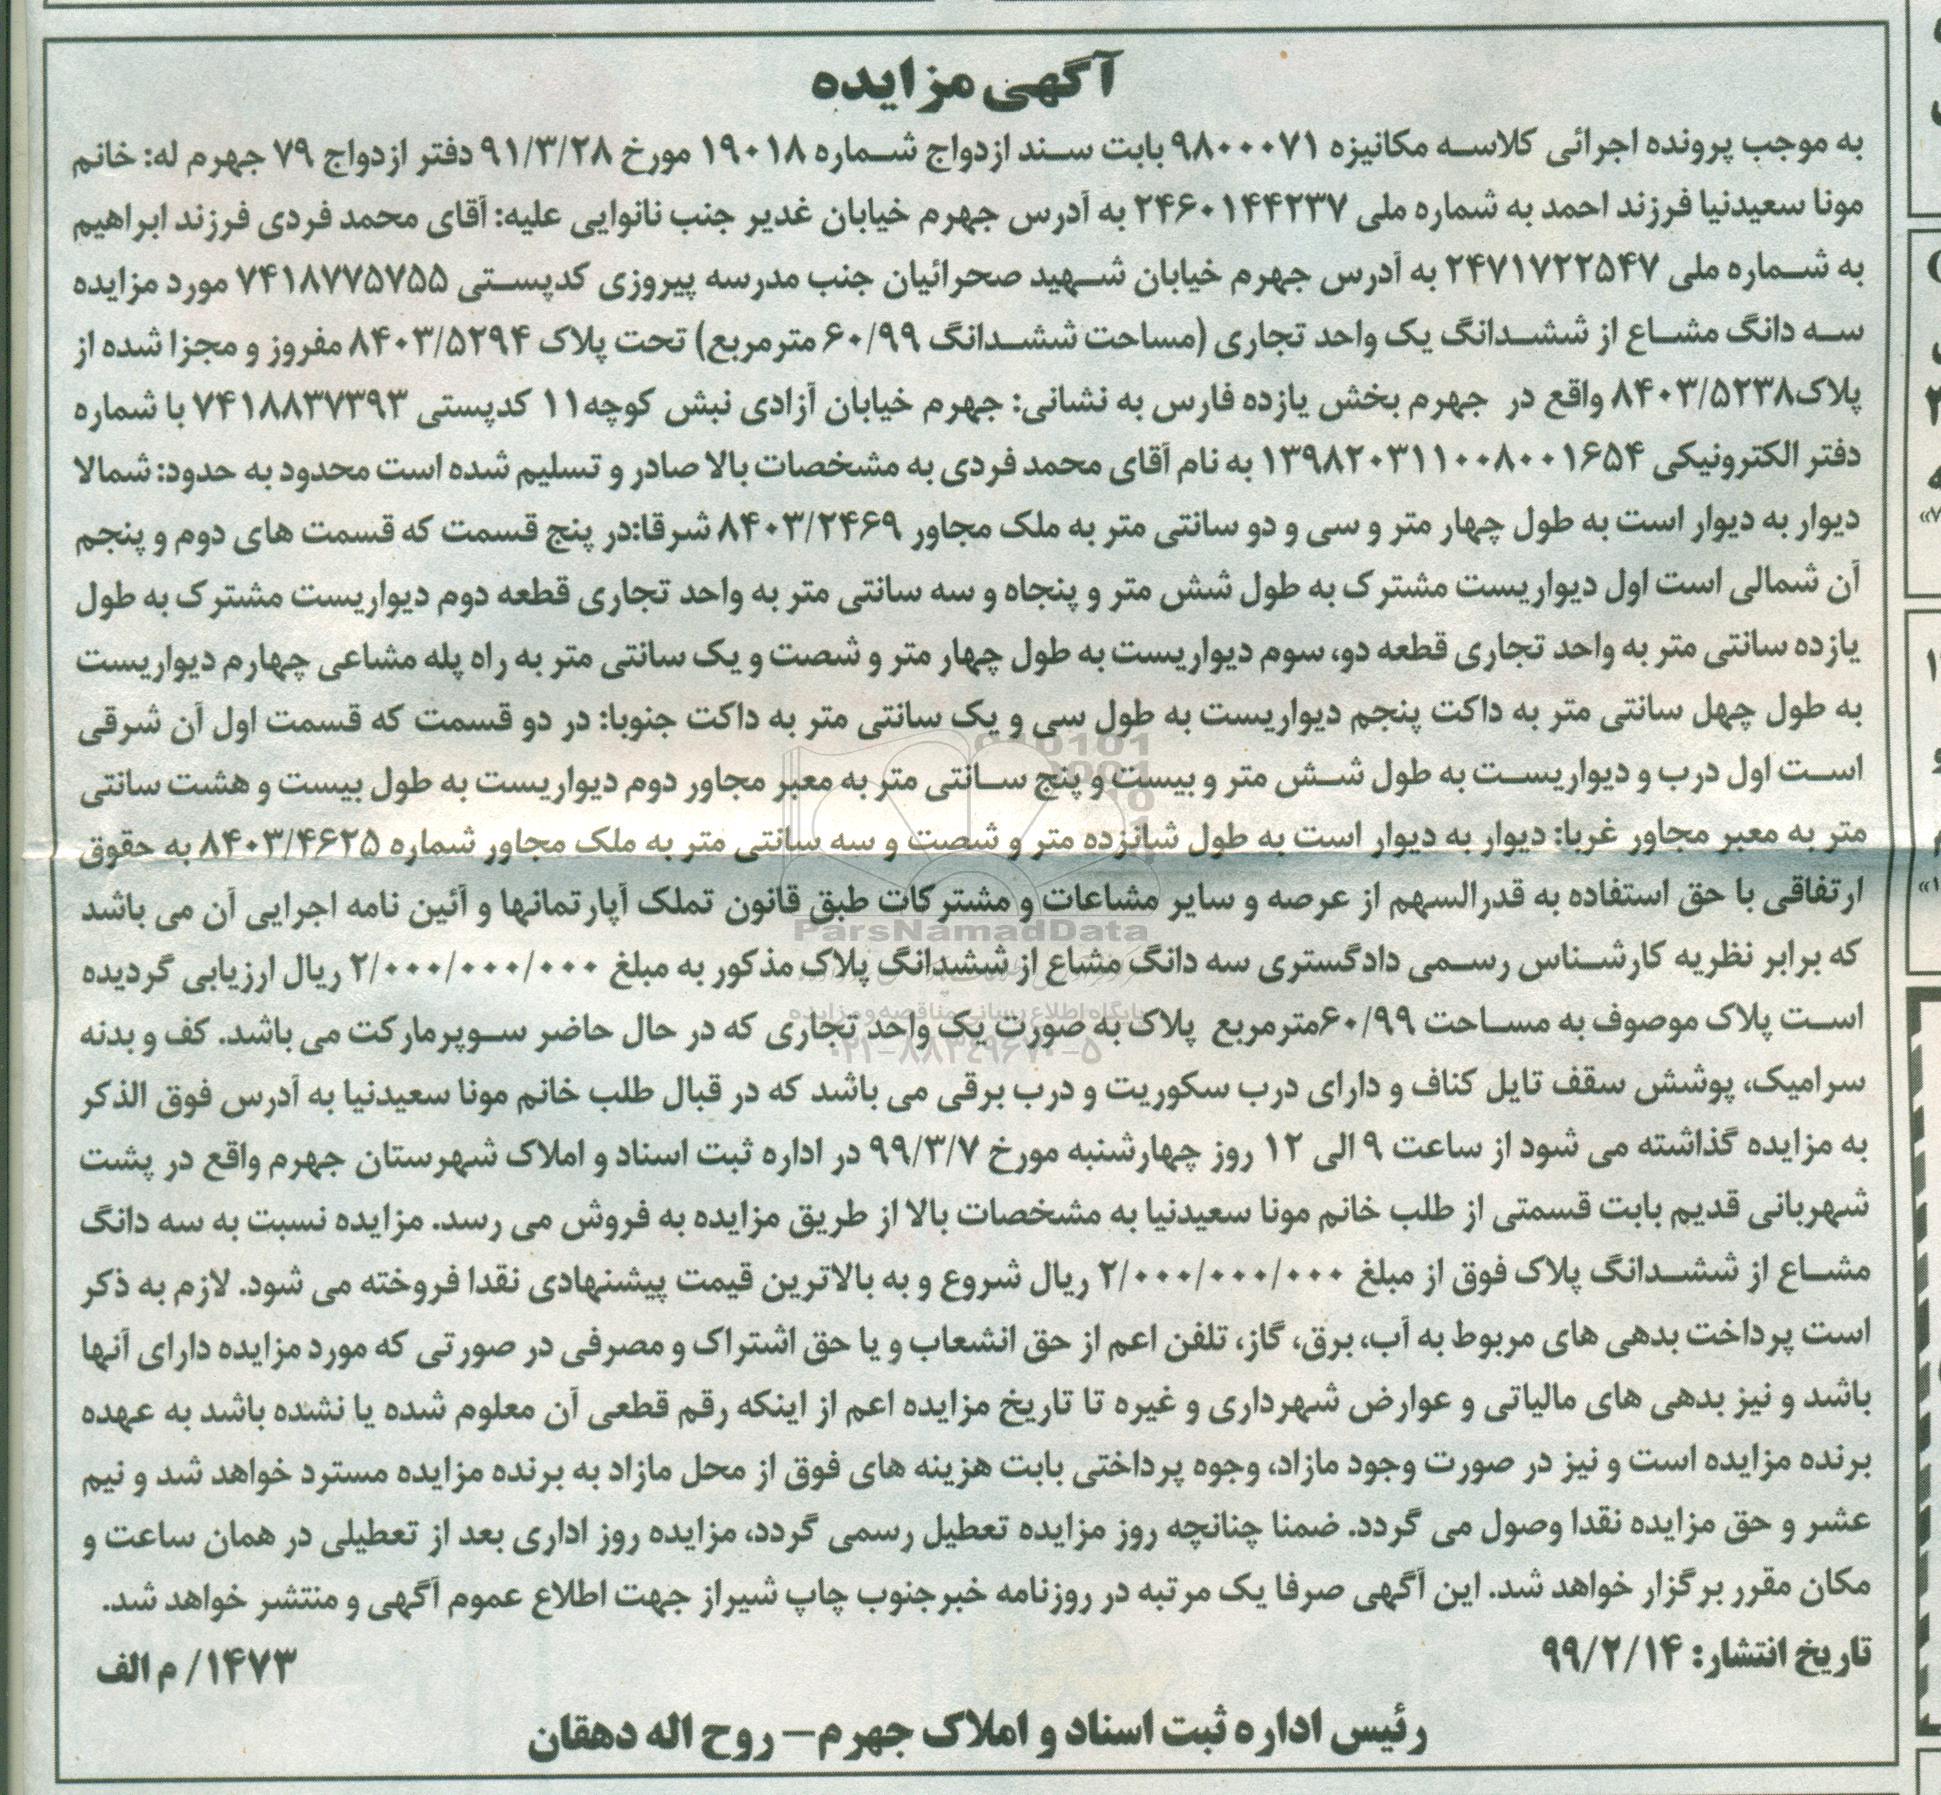 آگهی مزایده
به موجب پرونده اجرائی کلاسه مکانیزه ۹۸۰۰۰۷۱ بابت سند ازدواج شماره ۱۹۰۱۸ مورخ ۹۱/۳/۲۸ دفتر ازدواج ۷۹ جهرم له: خانم
مونا سعیدنیا فرزند احمد به شماره ملی ۲۴۶۰۱۴۴۲۳۷ به آدرس جهرم خیابان غدیر جنب نانوایی علیه: آقای محمد فردی فرزند ابراهیم
به شماره ملی ۲۴۷۱۷۲۲۵۴۷ به آدرس جهرم خیابان شهید صحرائیان جنب مدرسه پیروزی کدپستی ۷۴۱۸۷۷۵۷۵۵ مورد مزایده
سه دانگ مشاع از ششدانگ یک واحد تجاری (مساحت ششدانگ ۶۰/۹۹ مترمربع) تحت پلاک ۸۴۰۳/۵۲۹۴ مفروز و مجزا شده از
پلاک۸۴۰۳/۵۲۳۸ واقع در جهرم بخش یازده فارس به نشانی: جهرم خیابان آزادی نبش کوچه۱۱ کدپستی ۷۴۱۸۸۳۷۳۹۳ با شماره
دفتر الکترونیکی ۱۳۹۸۲۰۳۱۱۰۰۸۰۰۱۶۵۴ به نام آقای محمد فردی به مشخصات بالا صادر و تسلیم شده است محدود به حدود: شمالا
دیوار به دیوار است به طول چهار متر و سی و دو سانتی متر به ملک مجاور ۸۴۰۳/۲۴۶۹ شرقا:در پنج قسمت که قسمت های دوم و پنجم
آن شمالی است اول دیواریست مشترک به طول شش متر و پنجاه و سه سانتی متر به واحد تجاری قطعه دوم دیواریست مشترک به طول
یازده سانتی متر به واحد تجاری قطعه دو، سوم دیواریست به طول چهار متر و شصت و یک سانتی متر به راه پله مشاعی چهارم دیواریست
به طول چهل سانتی متر به داکت پنجم دیواریست به طول سی و یک سانتی متر به داکت جنوبا: در دو قسمت که قسمت اول آن شرقی
است اول درب و دیواریست به طول شش متر و بیست و پنج سانتی متر به معبر مجاور دوم دیواریست به طول بیست و هشت سانتی
متر به معبر مجاور غربا: دیوار به دیوار است به طول شانزده متر و شصت و سه سانتی متر به ملک مجاور شماره ۸۴۰۳/۴۶۲۵ به حقوق
ارتفاقی با حق استفاده به قدرالسهم از عرصه و سایر مشاعات و مشترکات طبق قانون تملک آپارتمانها و آئین نامه اجرایی آن می باشد
که برابر نظریه کارشناس رسمی دادگستری سه دانگ مشاع از ششدانگ پلاک مذکور به مبلغ ۲/۰۰۰/۰۰۰/۰۰۰ ریال ارزیابی گردیده
است پلاک موصوف به مساحت ۶۰/۹۹مترمربع پلاک به صورت یک واحد تجاری که در حال حاضر سوپرمارکت می باشد. کف و بدنه
سرامیک، پوشش سقف تایل کناف و دارای درب سکوریت و درب برقی می باشد که در قبال طلب خانم مونا سعیدنیا به آدرس فوق الذکر
به مزایده گذاشته می شود از ساعت ۹ الی ۱۲ روز چهارشنبه مورخ ۹۹/۳/۷ در اداره ثبت اسناد و املاک شهرستان جهرم واقع در پشت
شهربانی قدیم بابت قسمتی از طلب خانم مونا سعیدنیا به مشخصات بالا از طریق مزایده به فروش می رسد. مزایده نسبت به سه دانگ
مشاع از ششدانگ پلاک فوق از مبلغ ۲/۰۰۰/۰۰۰/۰۰۰ ریال شروع و به بالاترین قیمت پیشنهادی نقدا فروخته می شود. لازم به ذکر
است پرداخت بدهی های مربوط به آب، برق، گاز، تلفن اعم از حق انشعاب و یا حق اشتراک و مصرفی در صورتی که مورد مزایده دارای آنها
باشد و نیز بدهی های مالیاتی و عوارض شهرداری و غیره تا تاریخ مزایده اعم از اینکه رقم قطعی آن معلوم شده یا نشده باشد به عهده
برنده مزایده است و نیز در صورت وجود مازاد، وجوه پرداختی بابت هزینه های فوق از محل مازاد به برنده مزایده مسترد خواهد شد و نیم
عشر و حق مزایده نقدا وصول می گردد. ضمنا چنانچه روز مزایده تعطیل رسمی گردد، مزایده روز اداری بعد از تعطیلی در همان ساعت و
مکان مقرر برگزار خواهد شد. این آگهی صرفا یک مرتبه در روزنامه خبرجنوب چاپ شیراز جهت اطلاع عموم آگهی و منتشر خواهد شد.
تاریخ انتشار: ۹۹/۲/۱۴
۱۴۷۳/ م الف
رئیس اداره ثبت اسناد و املاک جهرم– روح اله دهقان
ParsNamadData
پایگاه اطلاع رسانی مناقصه و مزایده
۰۲۱-۸۸۳۴۹۶۷۰-۵